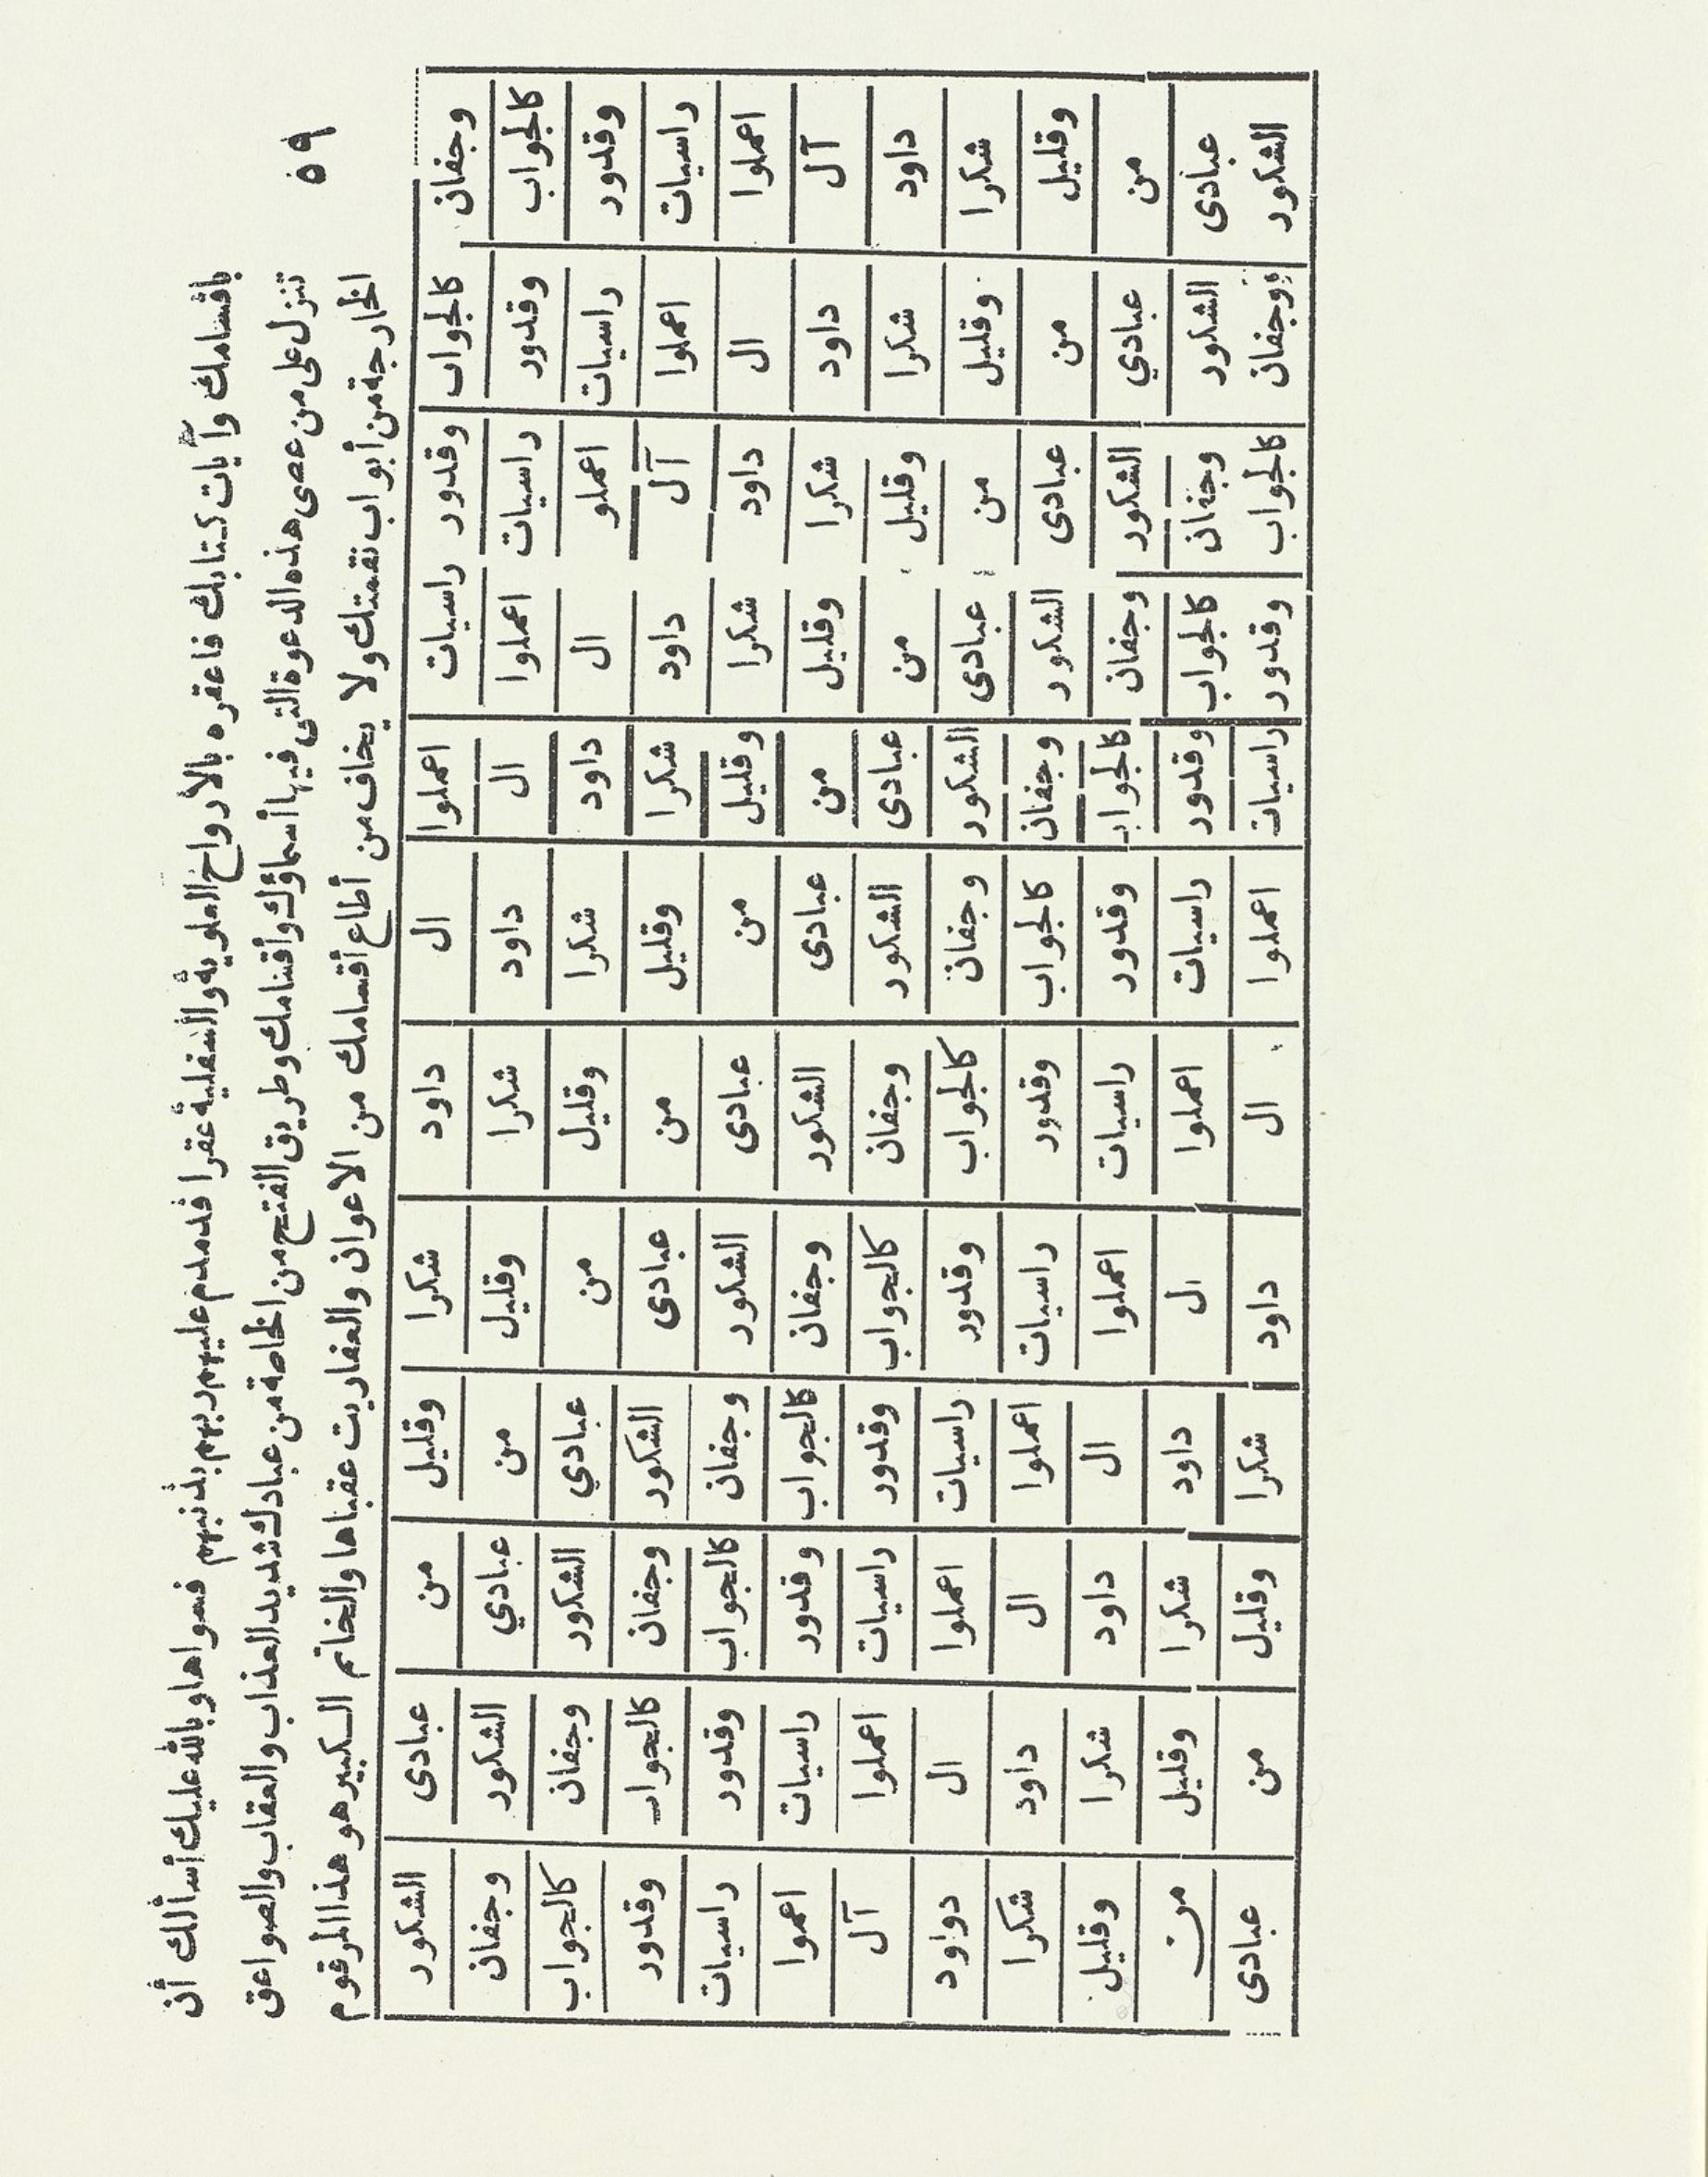 ٥٩
بأقسامك وآيات كتابك فاعقره بالأرواح العلوية والسفلية عقرا فدمدم عليهم ربهم بذنبهم فسواها وبالله عليك أسألك أن
تنزل على من عصى هذه الدعوة التى فيها أسماؤك وأقسامك وطريق الفتح من الخاصة من عبادك شديد العذاب والعقاب والصواعق
الخارجة من أبواب نقمتك ولا يخاف من أطاع أقسامك من الاعوان والعفاريت عقباها والخاتم الكبير هو هذا المرقوم
وجفان كالجواب وقدور راسيات اعملوا ال داود شكرا وقليل من عبادى الشكور
كالجواب وقدور راسيات اعملوا ال داود شكرا وقليل من عبادي الشكور وجفان
وقدور راسيات اعملو ال داود شكرا وقليل من عبادي الشكور وجفان كالجواب
راسيات اعملوا آل داود شكرا وقليل من عبادى الشكور وجفان كالجوا وقدور
اعملوا ال داود شكرا وقليل من عبادى الشكور وجفان كالجواب وقدور راسيات
آل داود شكرا وقليل من عبادى الشكور وجفان كالجواب وقدور راسيات اعموا
داود شكرا وقليل من عبادى الشكور وجفان كالجواب وقدور راسيات اعملوا آل
شكرا وقليل من عبادى الشكور وجفان كالجواب وقدور راسيات اعملوا ال دواود
وقليل من عبادى الشكور وجفان كالجواب وقدور راسيات اعملوا ال داود شكرا
من عبادي الشكور وجفان كالجواب وقدور راسيات اعملوا ال داود شكرا وقليل
عبادى الشكور وجفان كالجواب وقدور راسيات اعملوا ال داود شكرا وقليل من
الشكور وجفان كالجواب وقدور راسيات اعملوا ال داود شكرا وقليل من عبادى